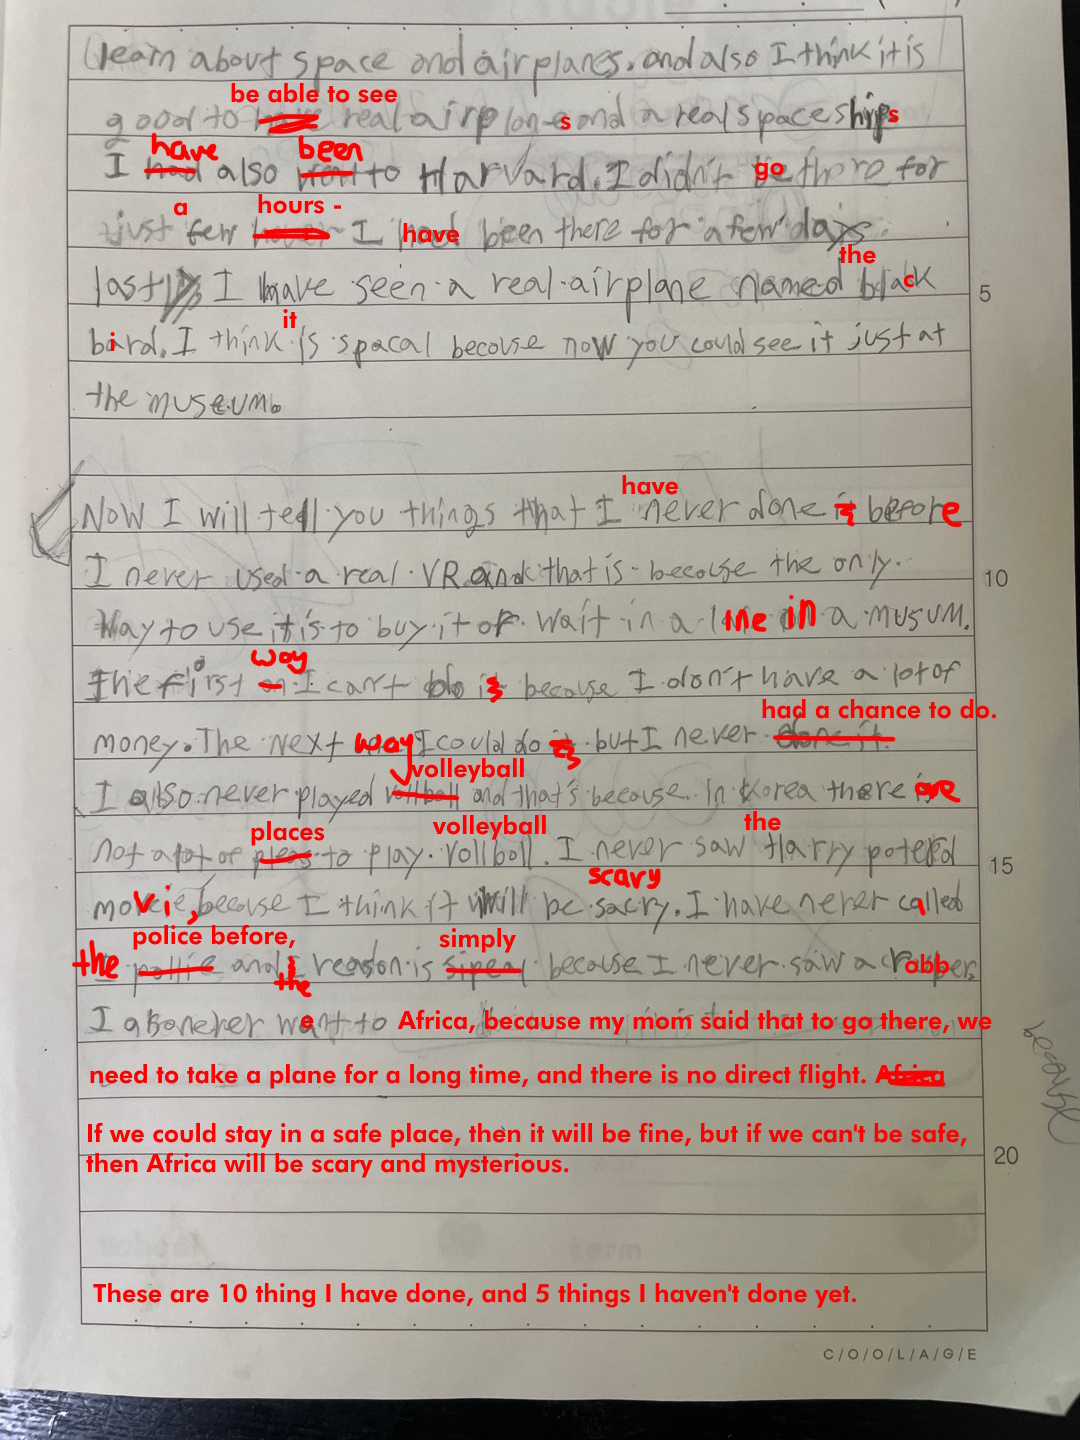 learn about space and airplanes. and also I think it is
be able to see
good to have real airplanes and a real spaceships
have been
I had also went to Harvard. I didn't go there for
a hours -
just few I have been there for a few days
the
last I have seen a real airplane named black
it
bird. I think is spacal because now you could see it just at
the museum.
5
have
Now I will tell you things that I never done it before
I never used a real VR and that is because the only
10
Way to use it is to buy it or wait in a line in a musum.
way
The first on I can't do is because I don't have a lot of
had a chance to do.
money. The next way I could do is but I never done it.
volleyball
I also never played vollball and that's because In Korea there are
places volleyball the
not a lot of pleas to play vollboll. I never saw Harry potered
15
scary
movie, because I think it will be sacry. I have never called
police before, simply
the pollie and the reason is sipeal because I never saw a robber
I also never went to Africa, because my mom said that to go there, we
need to take a plane for a long time, and there is no direct flight. Africa
If we could stay in a safe place, then it will be fine, but if we can't be safe,
then Africa will be scary and mysterious.
20
These are 10 thing I have done, and 5 things I haven't done yet.
C/O/O/L/A/G/E
because